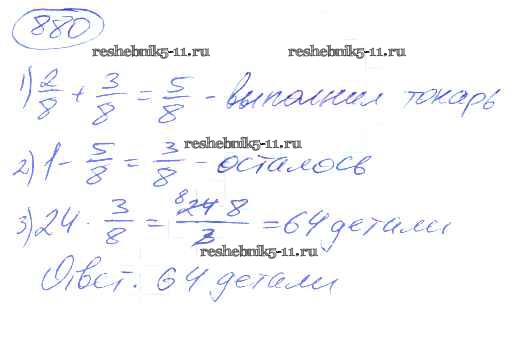 880
reshebnik5-11.ru reshebnik5-11.ru
1) 2/8 + 3/8 = 5/8 - выполнил токарь
reshebnik5-11.ru
2) 1 - 5/8 = 3/8 - осталось
3) 24 · 3/8 = 8 24 8/3 = 64 детали
reshebnik5-11.ru
Ответ. 64 детали